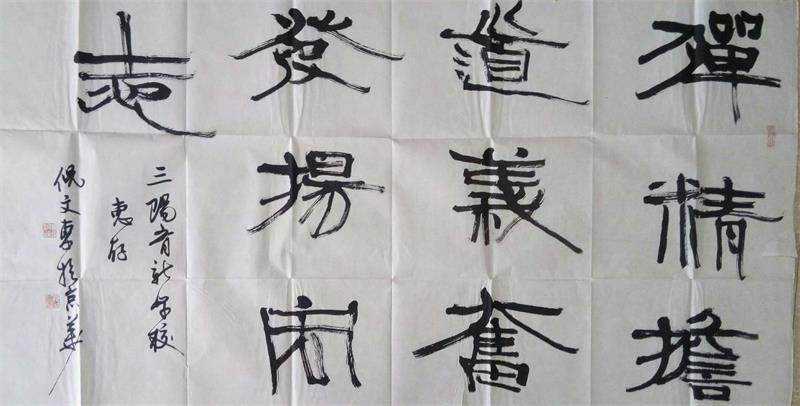 殫精擔
道義奮
發揚
志
三陽育新學校
惠存
倪文東於京華